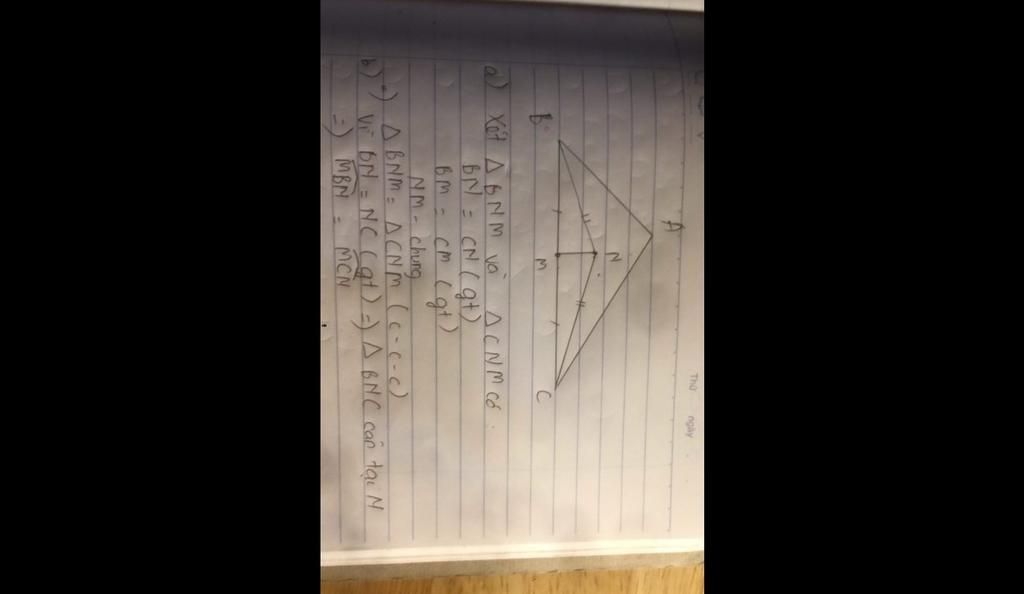 Thứ ngày
A
N
B M C
a) Xét Δ BNM và Δ CNM có
BN = CN (gt)
BM = CM (gt)
NM - chung
=) Δ BNM = Δ CNM (c-c-c)
b) Vì BN = NC (gt) =) Δ BNC cân tại N
=) MBN = MCN